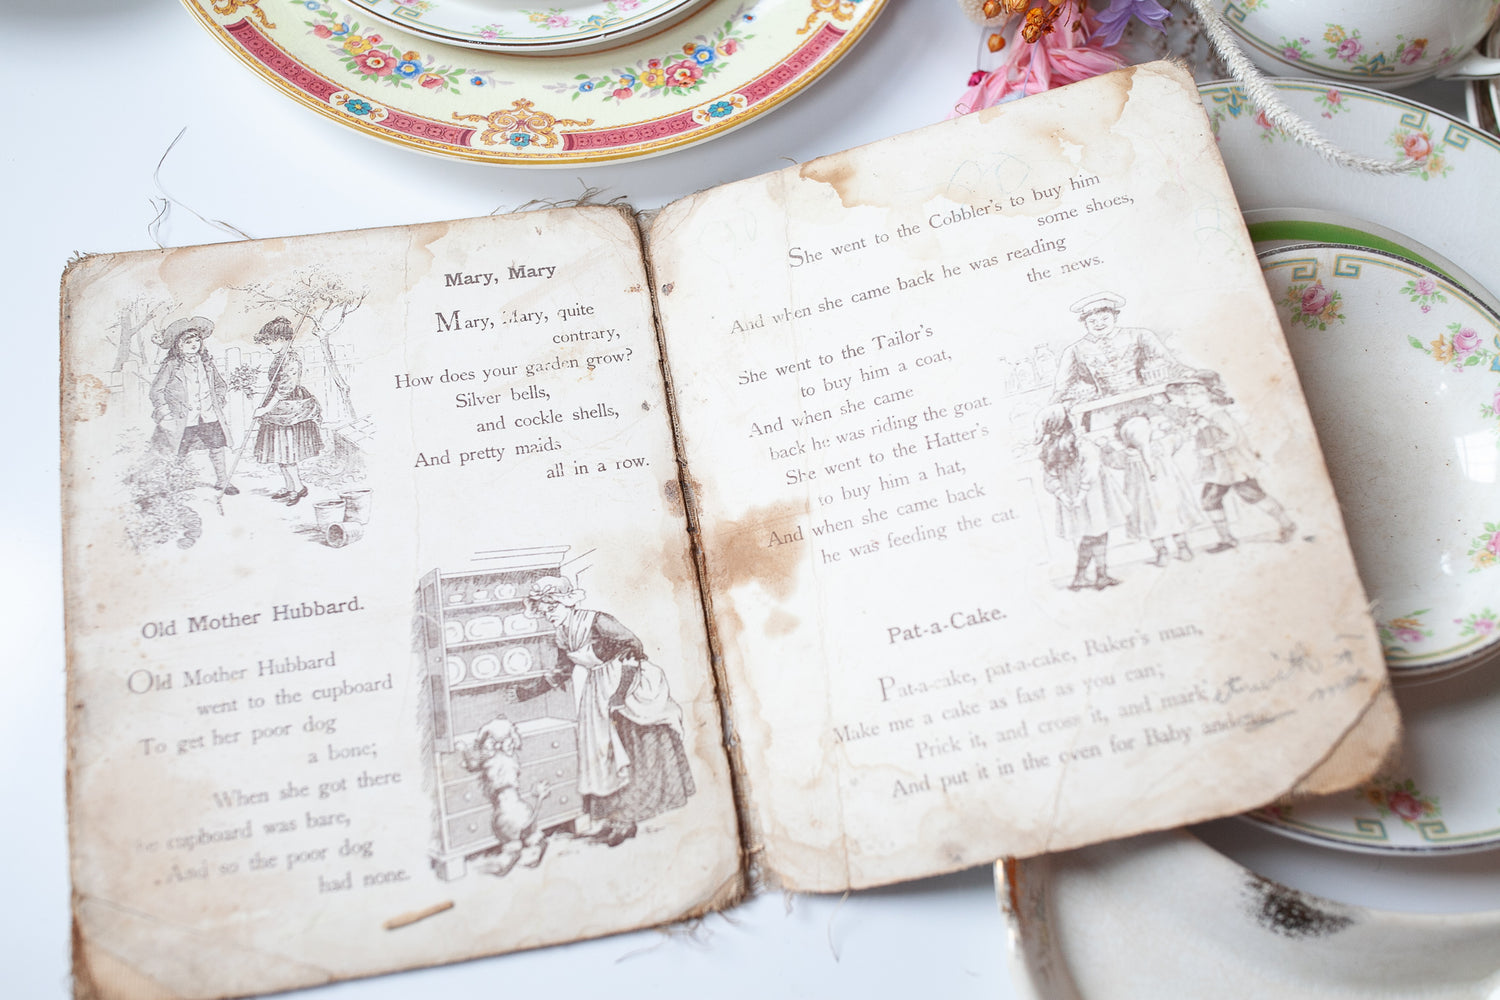 Mary, Mary
Mary, Mary, quite
contrary,
How does your garden grow?
Silver bells,
and cockle shells,
And pretty maids
all in a row.
Old Mother Hubbard.
Old Mother Hubbard
went to the cupboard
To get her poor dog
a bone;
When she got there
he cupboard was bare,
And so the poor dog
had none.
She went to the Cobbler's to buy him
some shoes,
And when she came back he was reading
the news.
She went to the Tailor's
to buy him a coat,
And when she came
back he was riding the goat.
She went to the Hatter's
to buy him a hat,
And when she came back
he was feeding the cat.
Pat-a-Cake.
Pat-a-cake, pat-a-cake, Baker's man,
Make me a cake as fast as you can;
Prick it, and cross it, and mark
And put it in the oven for Baby and